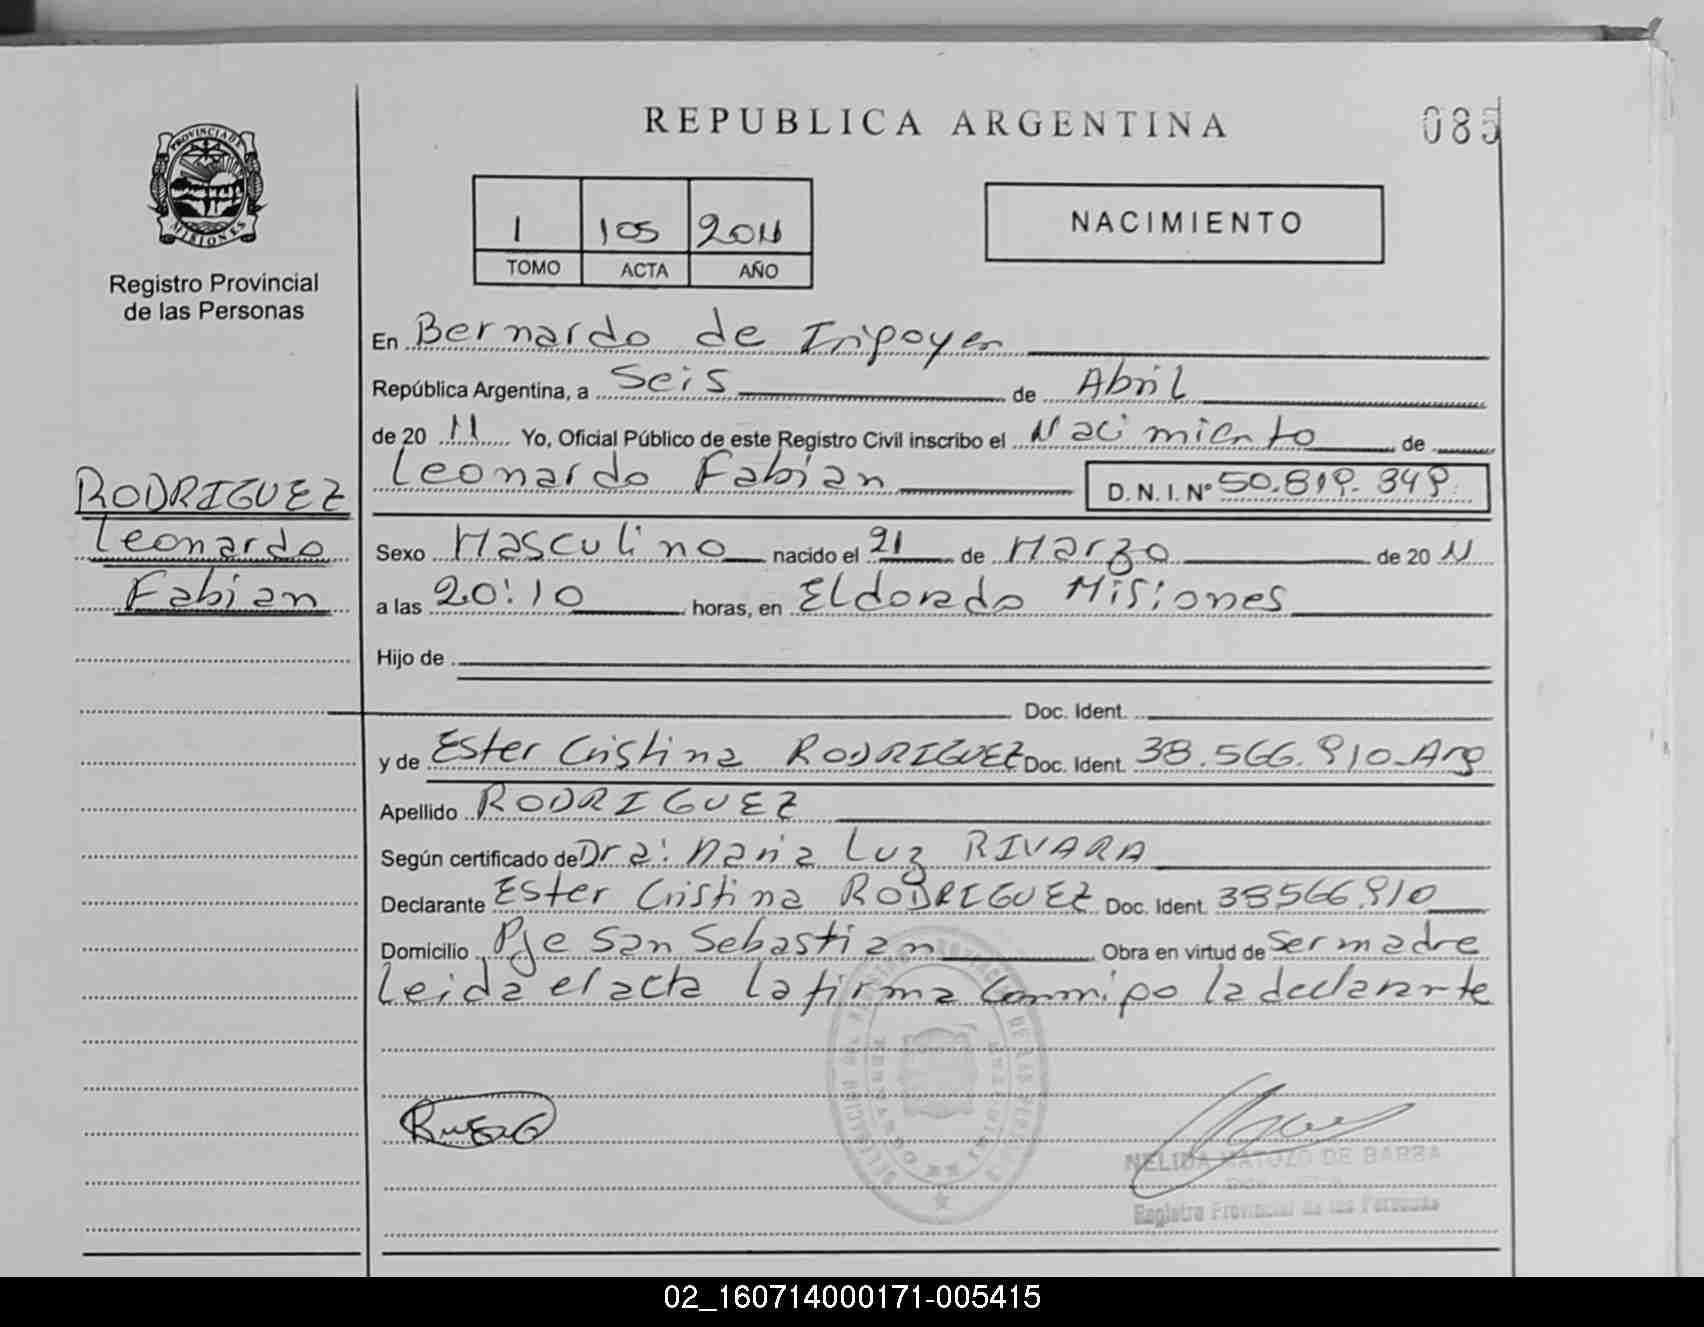 REPUBLICA ARGENTINA
085
PROVINCIA DE MISIONES
Registro Provincial
de las Personas
1 105 2011
TOMO ACTA AÑO
NACIMIENTO
En Bernardo de Iripoyen
República Argentina, a Seis de Abril
de 20 11 Yo, Oficial Público de este Registro Civil inscribo el Nacimiento de
Leonardo Fabian D.N.I. Nº 50.819.349
RODRIGUEZ
Leonardo
Fabian
Sexo Masculino nacido el 21 de Marzo de 20 11
a las 20:10 horas, en Eldorado Misiones
Hijo de
Doc. Ident.
y de Ester Cristina RODRIGUEZ Doc. Ident. 38.566.910_Arg
Apellido RODRIGUEZ
Según certificado de Dra: Maria Luz RIVARA
Declarante Ester Cristina RODRIGUEZ Doc. Ident. 38566.910
Domicilio Pje San Sebastian Obra en virtud de Ser madre
Leida el acta la firma conmipo la declarante
NELIDA MATOZO DE BARBA
Registro Provincial de las Personas
02_160714000171-005415